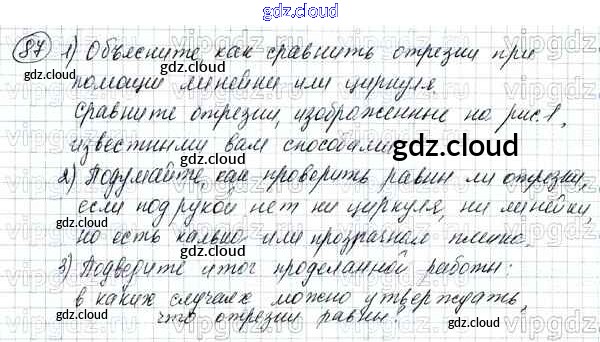 gdz.cloud
87 1) Объясните как сравнить отрезки при
gdz.cloud gdz.cloud
помощи линейки или циркуля.
Сравните отрезки, изображенные на рис. 1,
известными вам способами.
gdz.cloud
2) Подумайте, как проверить равны ли отрезки,
если под рукой нет ни циркуля, ни линейки,
но есть калька или прозрачная пленка.
3) Подведите итог проделанной работы:
в каких случаях можно утверждать,
что отрезки равны?
gdz.cloud gdz.cloud